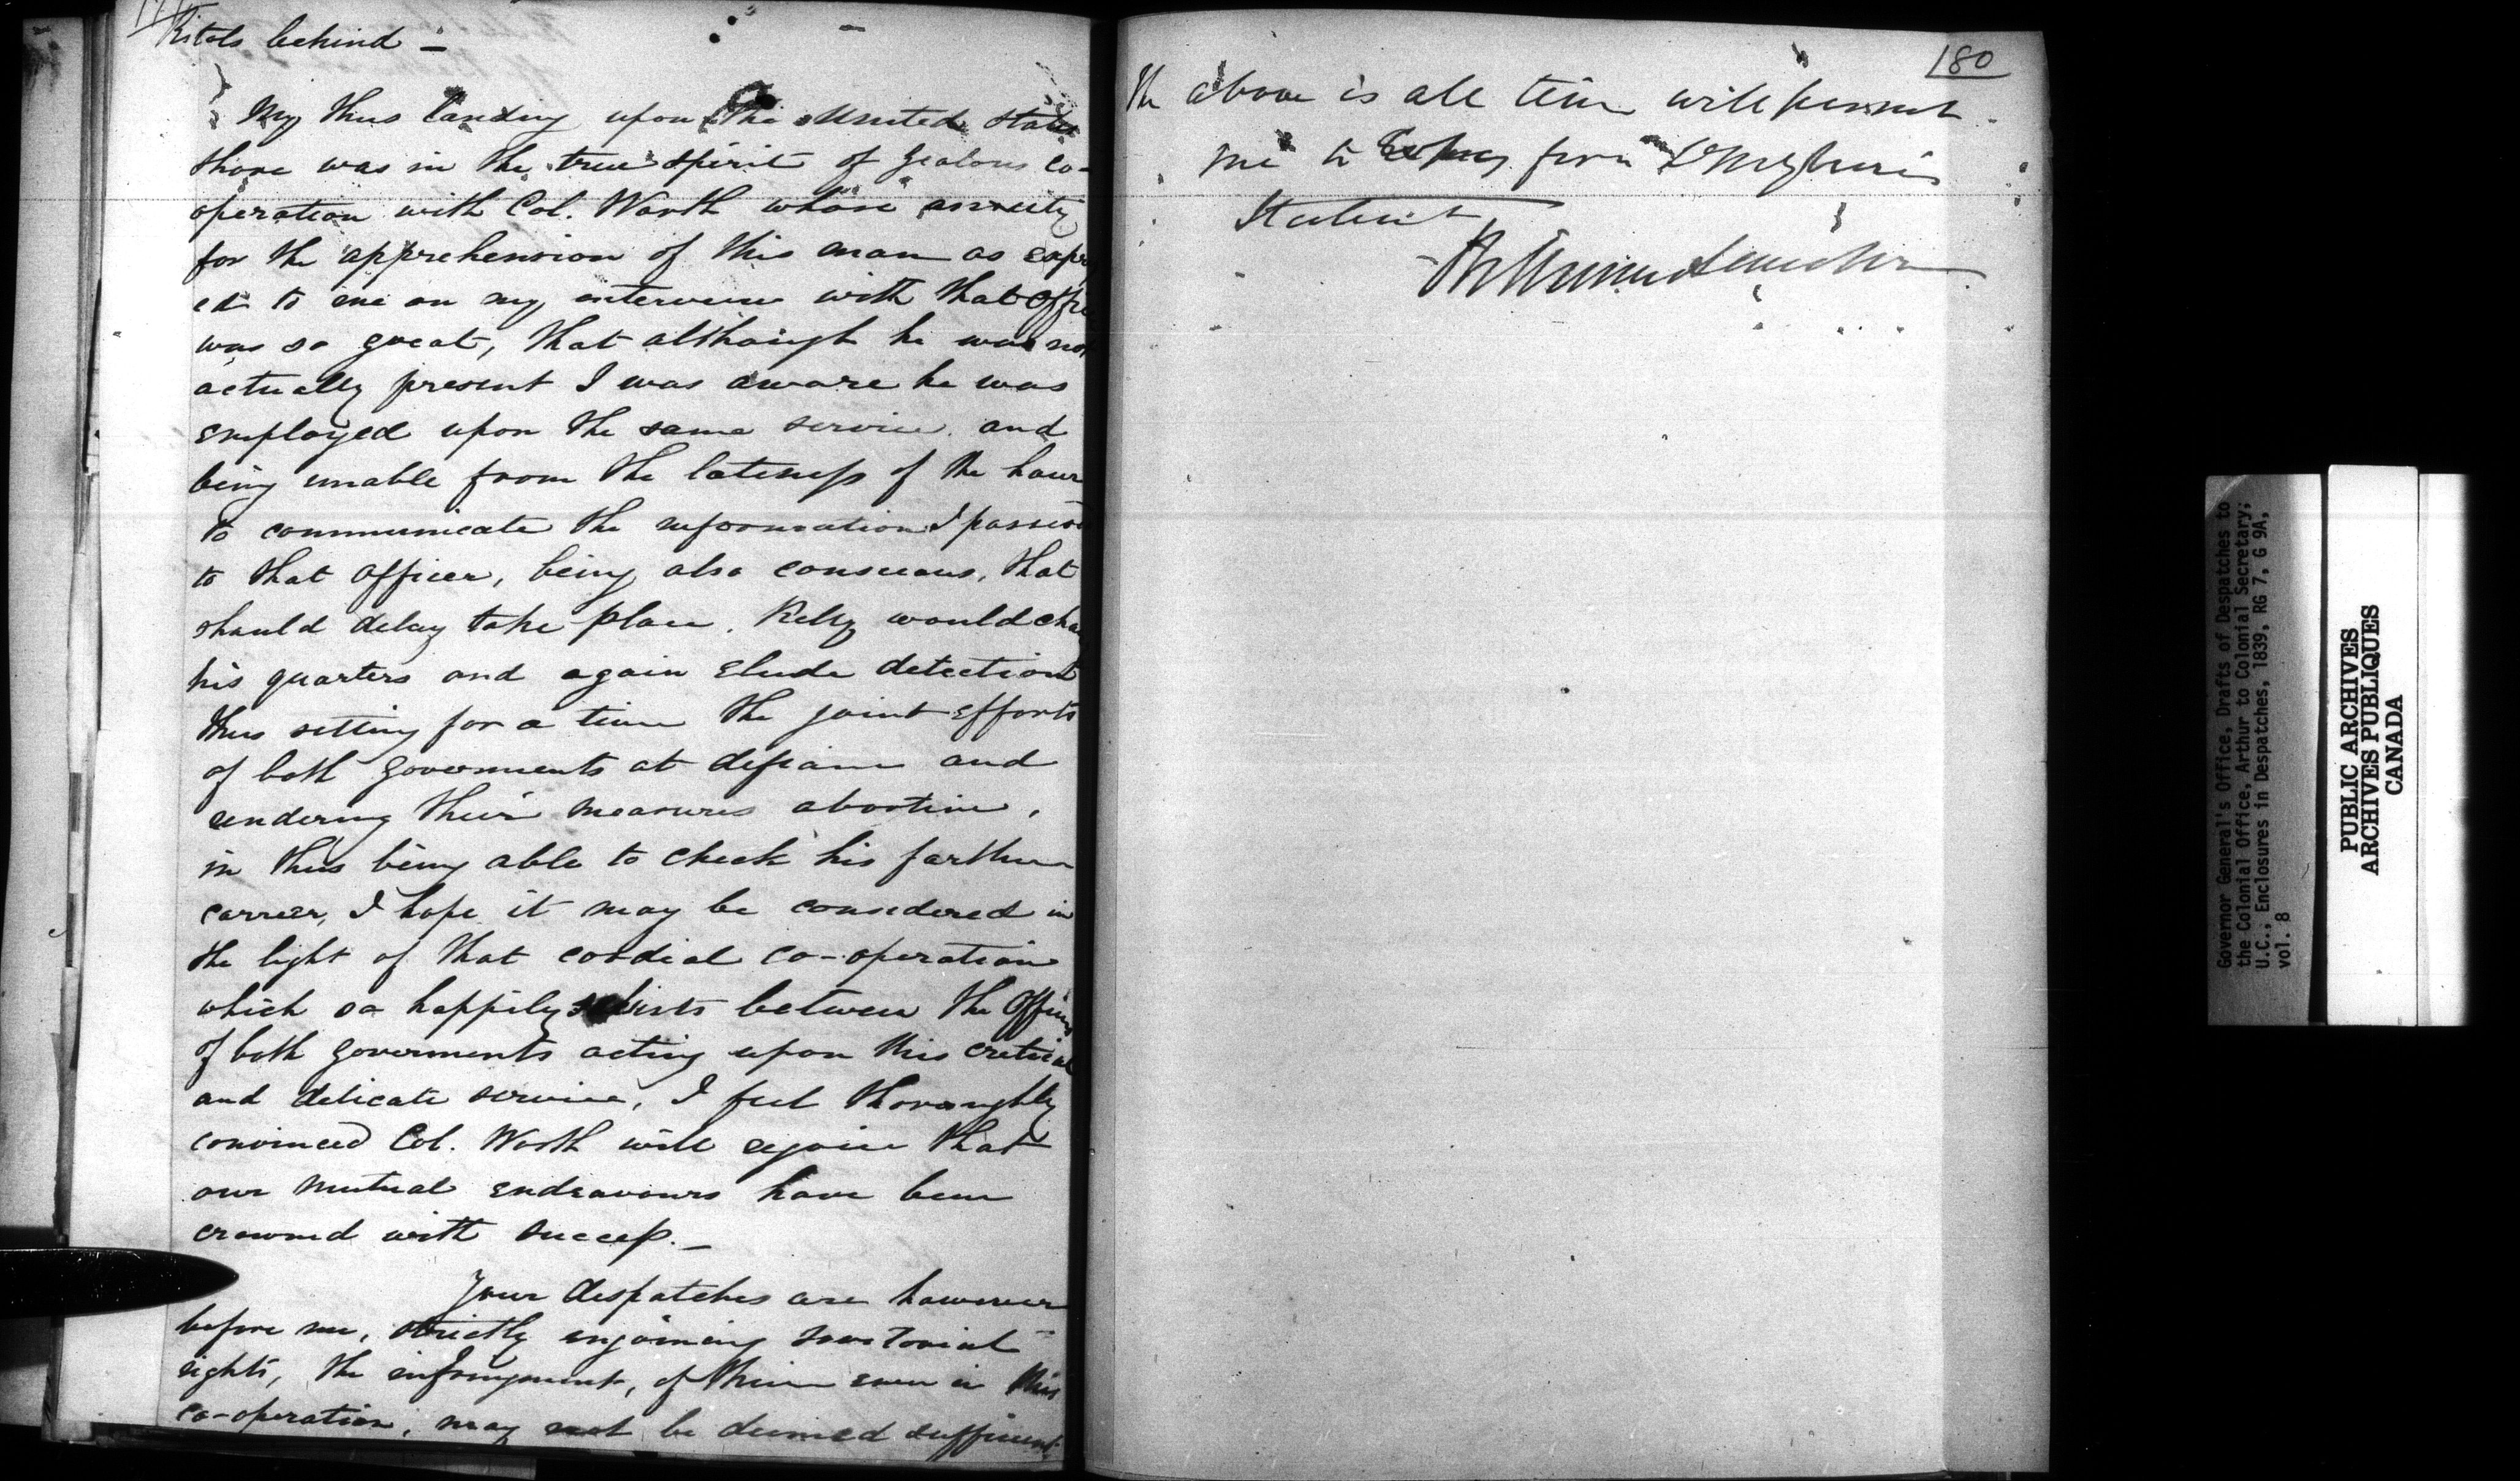 Pistols behind —
My thus landing upon the United States
Shore was in the true spirit of Zealous co-
operation with Col. Worth whose anxiety
for the apprehension of this man as expres
ed to me on my interview with that offi
was so great, that although he was not
actually present I was aware he was
employed upon the same service. and
being unable from the lateness of the hour
to communicate the information I possess
to that officer, being also conscious, that
should delay take place, Kelly would cha
his quarters and again elude detection
thus setting for a time the joint efforts
of both governments at defiance and
rendering their measures abortive,
in thus being able to check his farther
carreer, I hope it may be considered in
the light of that cordial co-operation
which so happily exists between the Officers
of both goverments acting upon this critical
and delicate service, I feel thoroughly
convinced Col. Worth will rejoice that
our mutual endeavours have been
crowned with success. —
Your despatches are however
before me, strictly enjoining
rights, the infringment, of them even in this
co-operation, may not be deemed sufficient
180
The above is all time will permit
me to from
Statement
Governor General's Office, Drafts of Despatches to
the Colonial Office, Arthur to Colonial Secretary;
U.C., Enclosures in Despatches, 1839, RG 7, G 9A,
vol. 8
PUBLIC ARCHIVES
ARCHIVES PUBLIQUES
CANADA